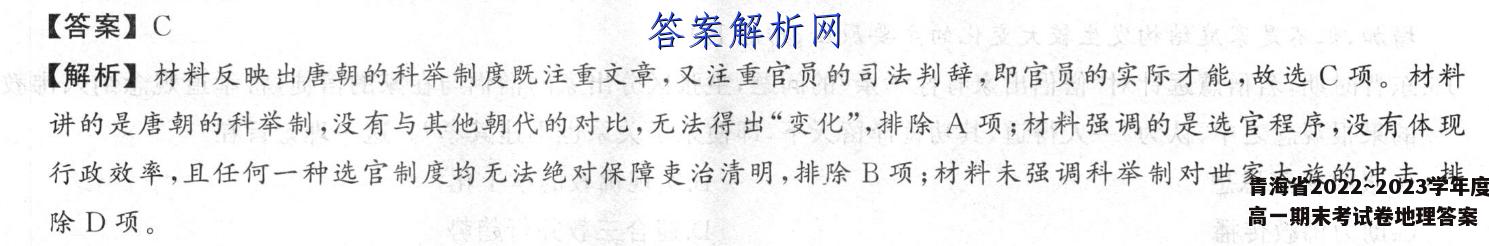 【答案】C
答案解析网
【解析】材料反映出唐朝的科举制度既注重文章,又注重官员的司法判辞,即官员的实际才能,故选 C 项。材料
讲的是唐朝的科举制,没有与其他朝代的对比,无法得出“变化”,排除 A 项;材料强调的是选官程序,没有体现
行政效率,且任何一种选官制度均无法绝对保障吏治清明,排除 B 项;材料未强调科举制对世家大族的冲击,排
除 D 项。
青海省2022~2023学年度
高一期末考试卷地理答案